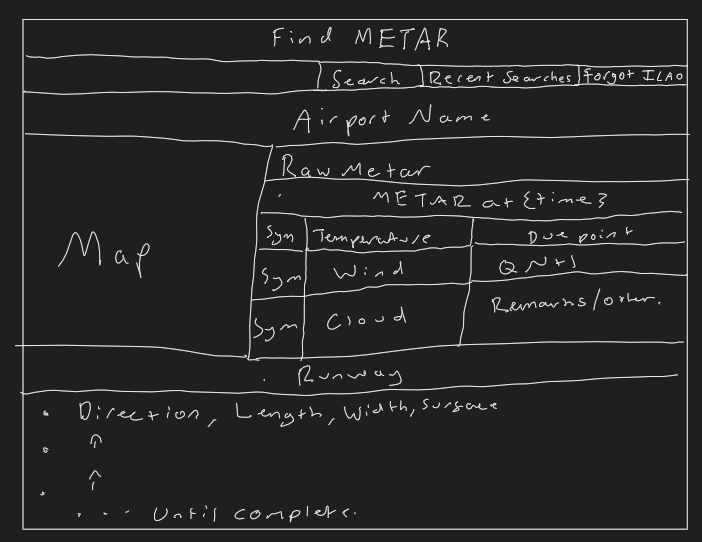 Find METAR
Search Recent Searches Forgot ILAO
Airport Name
Raw Metar
METAR at {time}
Map
Sym Temperature Due point
Sym Wind QNH
Sym Cloud Remarks/other.
Runway
• Direction, Length, Width, Surface
• ↑
• ↑
... Until complete.